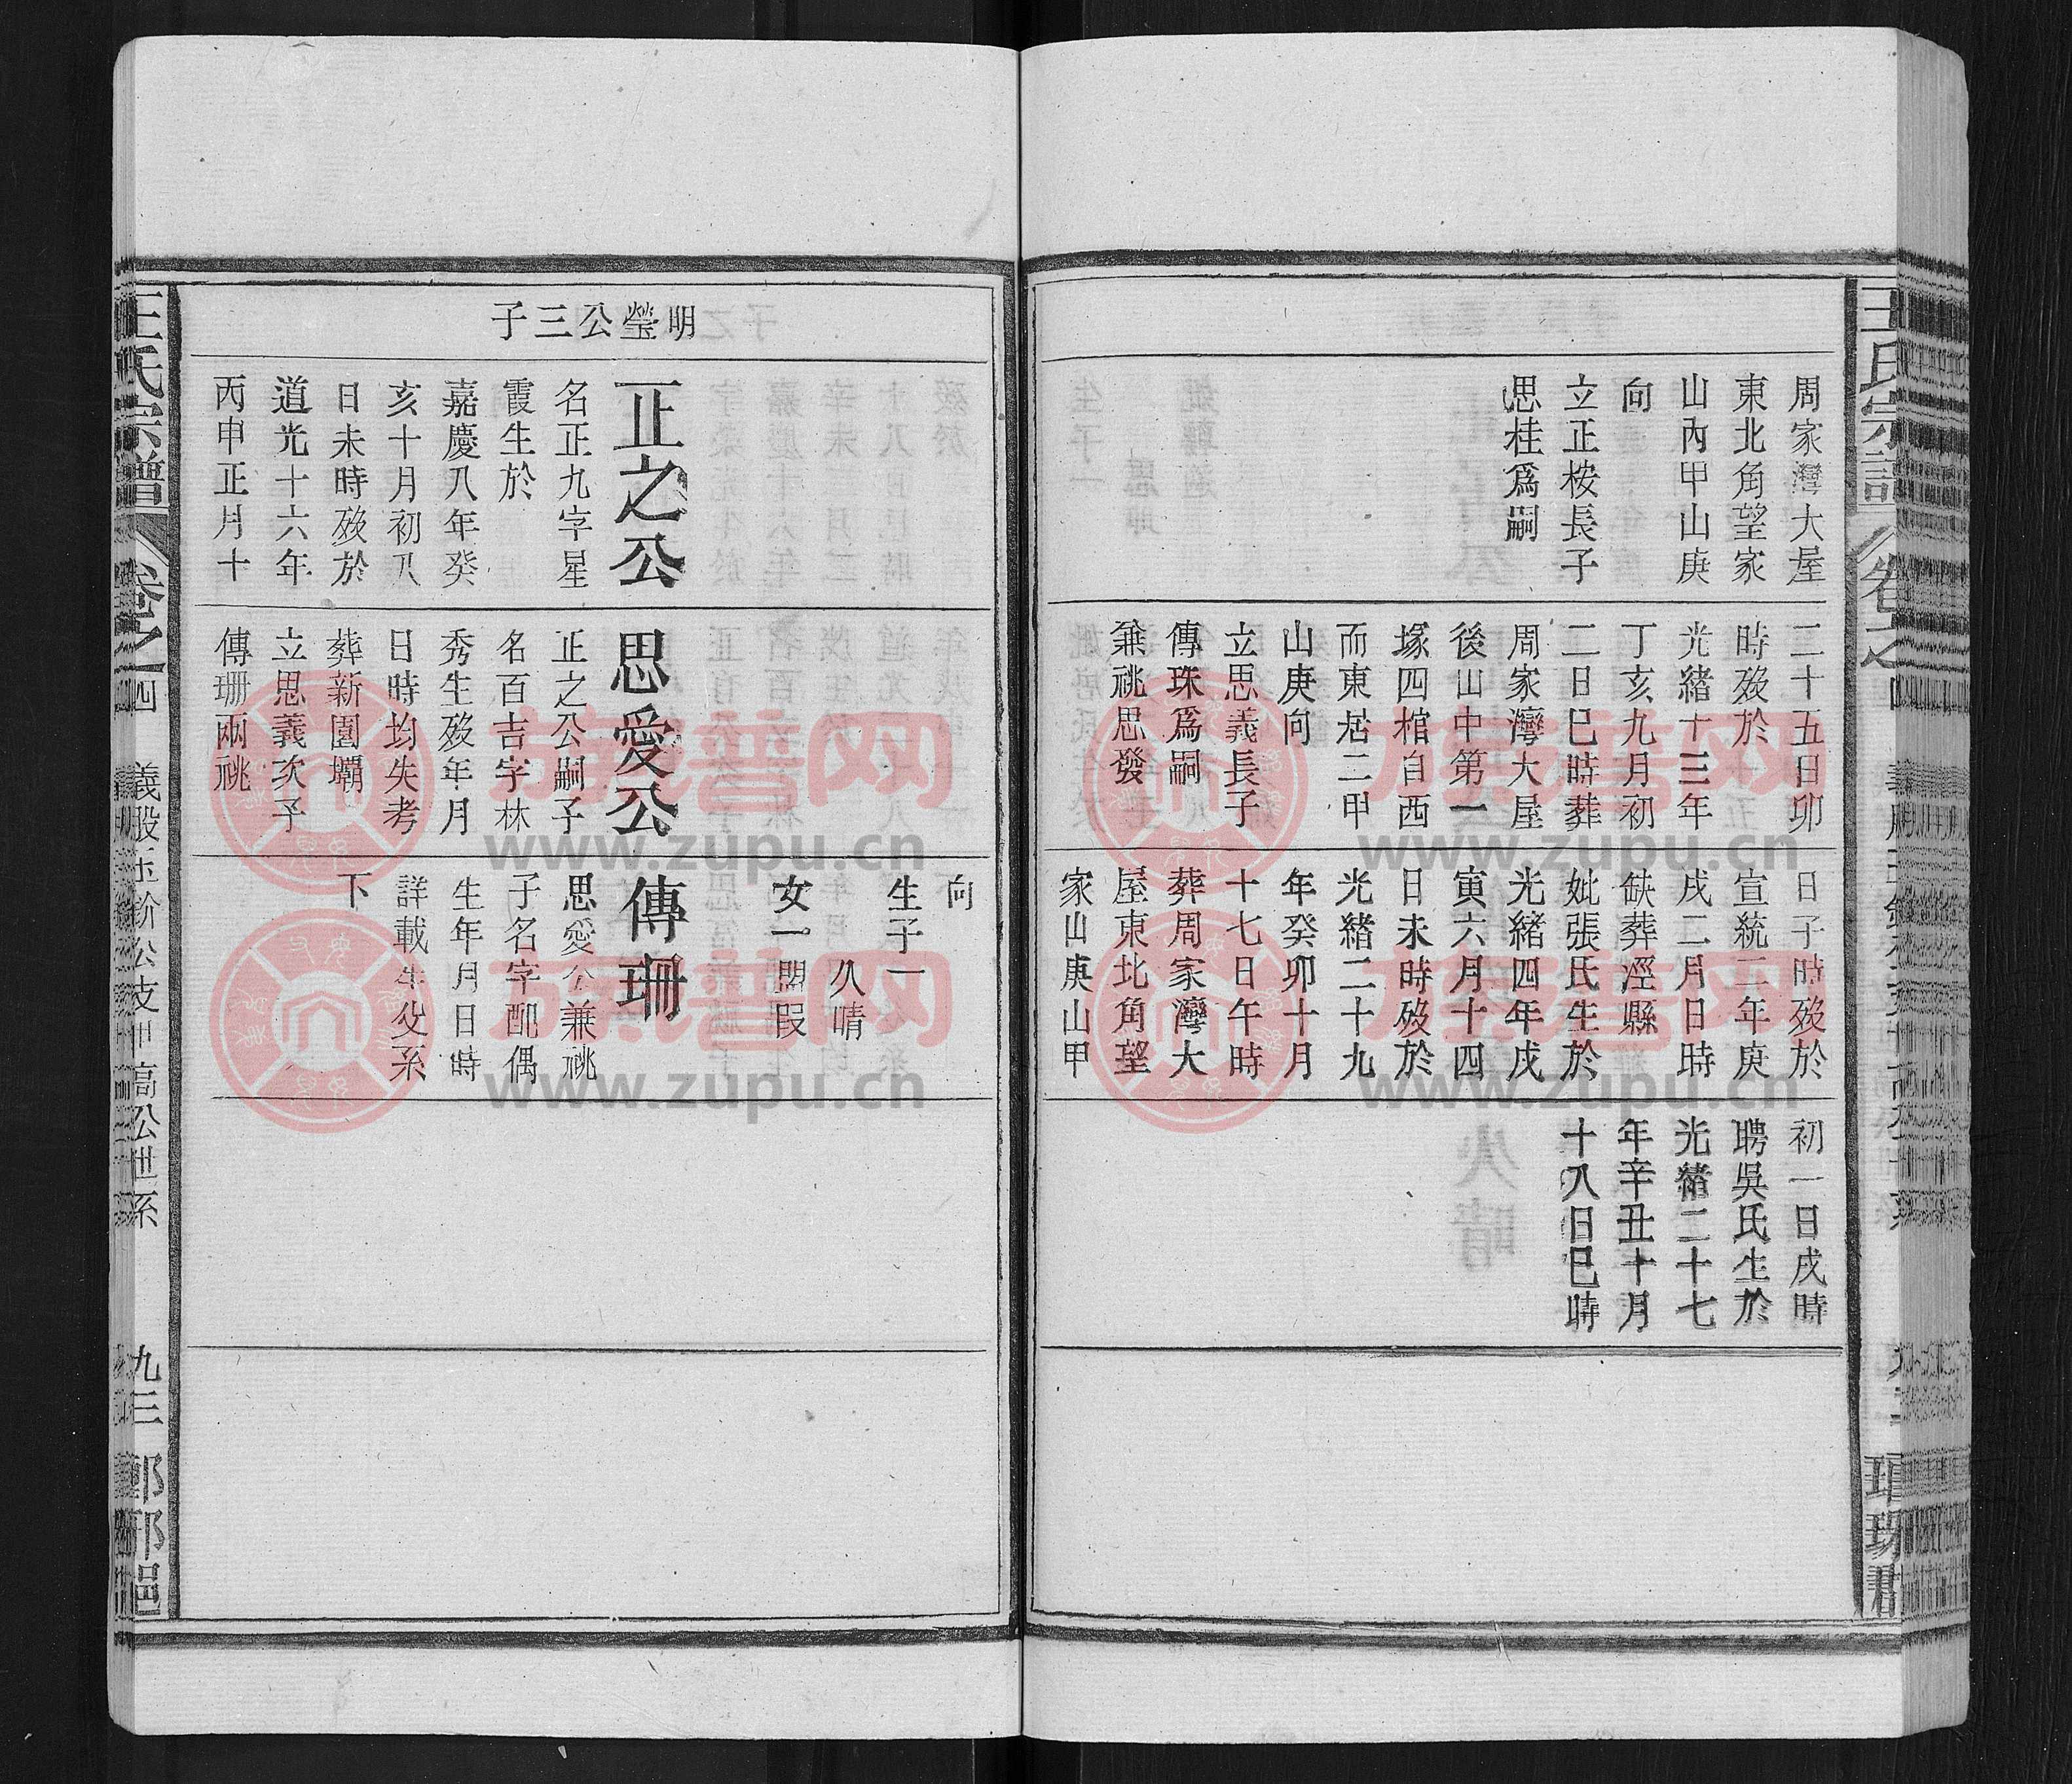 周家灣大屋
東北角望家
山內甲山庚
向
立正桉長子
思桂爲嗣
二十五日卯
時歿於
光緒十三年
丁亥九月初
二日巳時葬
周家灣大屋
後山中第一
塚四棺自西
而東居二甲
山庚向
立思義長子
傳珠爲嗣
兼祧思發
日子時歿於
宣統二年庚
戌二月日時
缺葬涇縣
妣張氏生於
光緒四年戊
寅六月十四
日未時歿於
光緒二十九
年癸卯十月
十七日午時
葬周家灣大
屋東北角望
家山庚山甲
初一日戌時
聘吳氏生於
光緒二十七
年辛丑十月
十八日巳時
明瑩公三子
正之公
名正九字星
霞生於
嘉慶八年癸
亥十月初八
日未時歿於
道光十六年
丙申正月十
思愛公
正之公嗣子
名百吉字林
秀生歿年月
日時均失考
葬新園壩
立思義次子
傳珊兩祧
向
生子一
久晴
女一
傳珊
思愛公兼祧
子名字配偶
生年月日時
詳載本父系
下
王氏宗譜
卷之四
義股玉階公支甲高公世系
九三
www.zupu.cn
www.zupu.cn
www.zupu.cn
www.zupu.cn
族譜网
族譜网
族譜网
族譜网